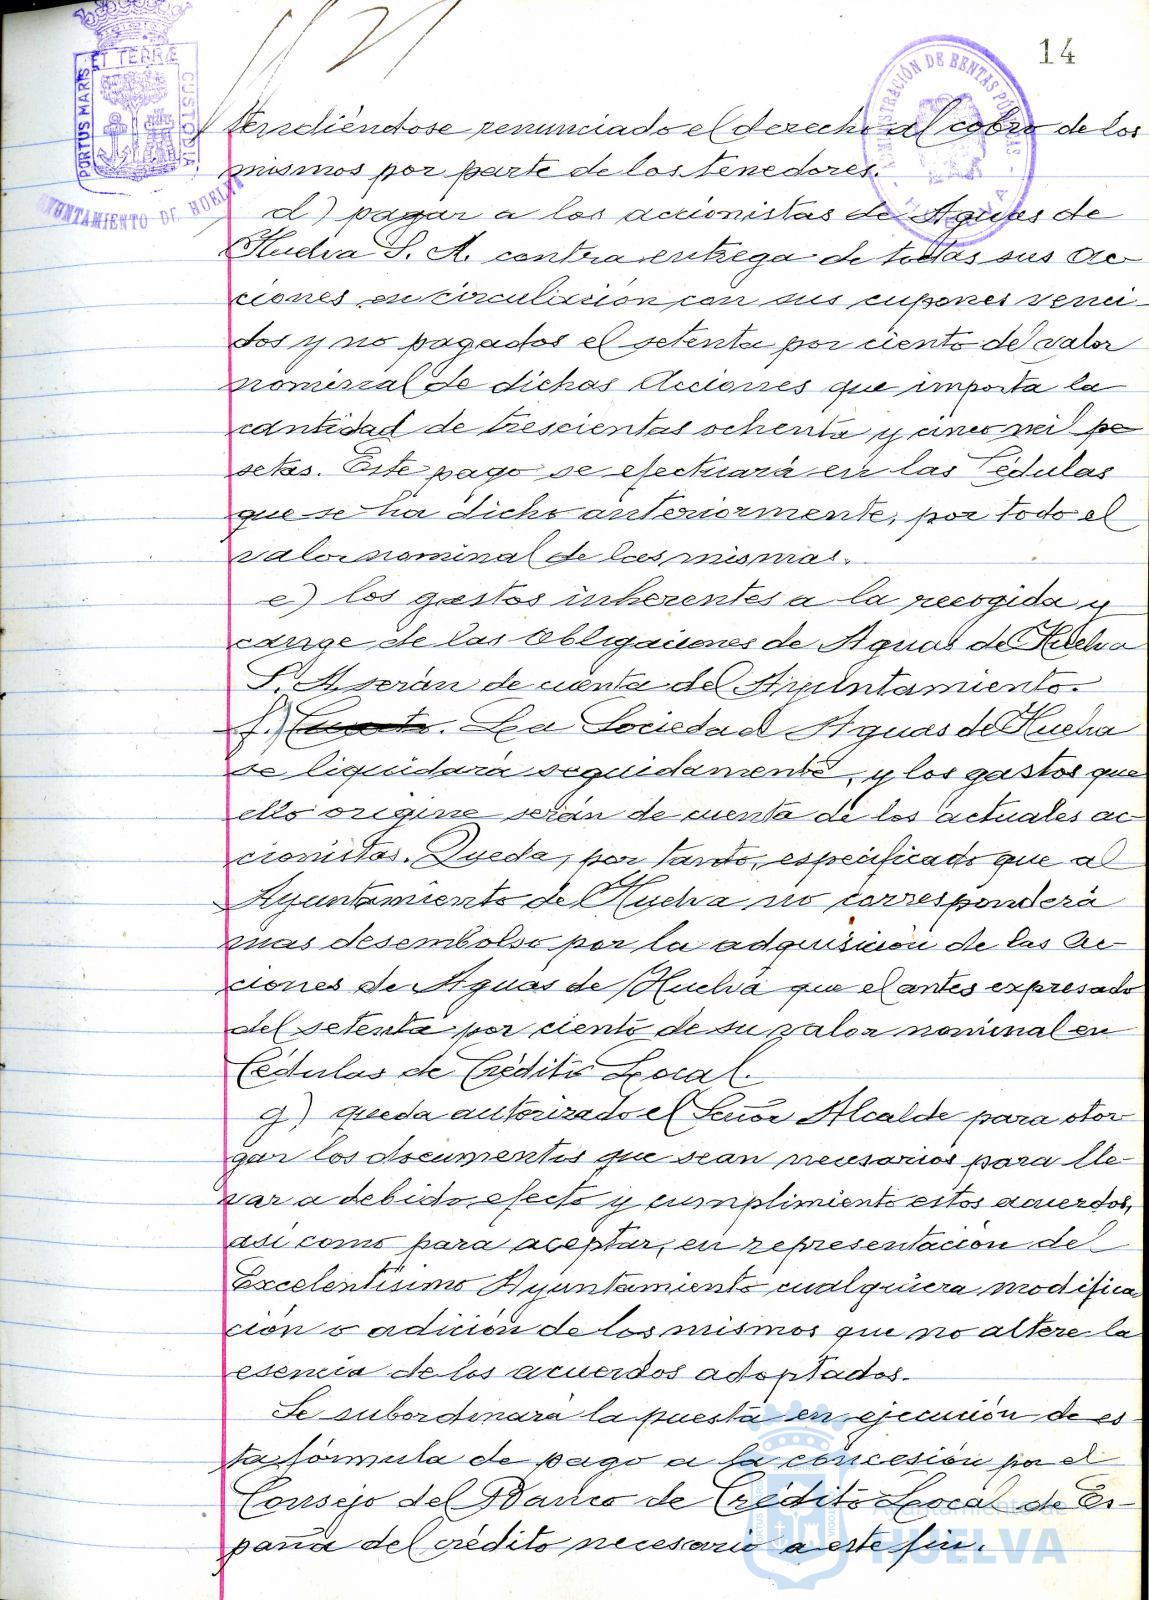 14
PORTUS MARIS ET TERRÆ CUSTODIA
AYUNTAMIENTO DE HUELVA
ADMINISTRACIÓN DE RENTAS PÚBLICAS
HUELVA
tendiéndose renunciado el derecho al cobro de los
mismos por parte de los tenedores.
d) pagar a los accionistas de Aguas de
Huelva S. A. contra entrega de todas sus Ac-
ciones en circulación con sus cupones venci-
dos y no pagados el setenta por ciento del valor
nominal de dichas Acciones que importa la
cantidad de trescientas ochenta y cinco mil pe
setas. Este pago se efectuará en las Cédulas
que se ha dicho anteriormente, por todo el
valor nominal de las mismas.
e) los gastos inherentes a la recogida y
cange de las Obligaciones de Aguas de Huelva
S. A. serán de cuenta del Ayuntamiento.
f.) Cuarto. La Sociedad Aguas de Huelva
se liquidará seguidamente, y los gastos que
ello origine serán de cuenta de los actuales ac-
cionistas. Queda, por tanto, especificado que al
Ayuntamiento de Huelva no corresponderá
mas desembolso por la adquisición de las Ac-
ciones de Aguas de Huelva que el antes expresado
del setenta por ciento de su valor nominal en
Cédulas de Crédito Local.
g) queda autorizado el Señor Alcalde para otor
gar los documentos que sean necesarios para lle-
var a debido efecto y cumplimiento estos acuerdos,
así como para aceptar, en representación del
Excelentísimo Ayuntamiento cualquiera modifica
ción o adición de los mismos que no altere la
esencia de los acuerdos adoptados.
Se subordinará la puesta en ejecución de es
ta fórmula de pago a la concesión por el
Consejo del Banco de Crédito Local de Es-
paña del crédito necesario a este fin.
Ayuntamiento de
HUELVA